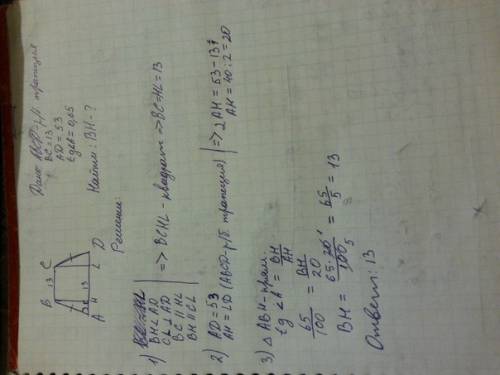 Дано: ABCD-р/б трапеция
BC=13
AD=53
tg∠A=0,65
Найти: BH-?
B 13 C
13
A H L D
Решение:
1) BH⊥AD
CL⊥AD
BC||HL
BH||CL
=> BCHL-квадрат => BC=HL=13
2) AD=53
AH=LD (ABCD-р/б трапеция)
=> 2AH=53-13
AH=40:2=20
3) △ABH-прям.
tg∠A = BH/AH
65/100 = BH/20
BH = 65·20/100 = 65/5 = 13
Ответ: 13